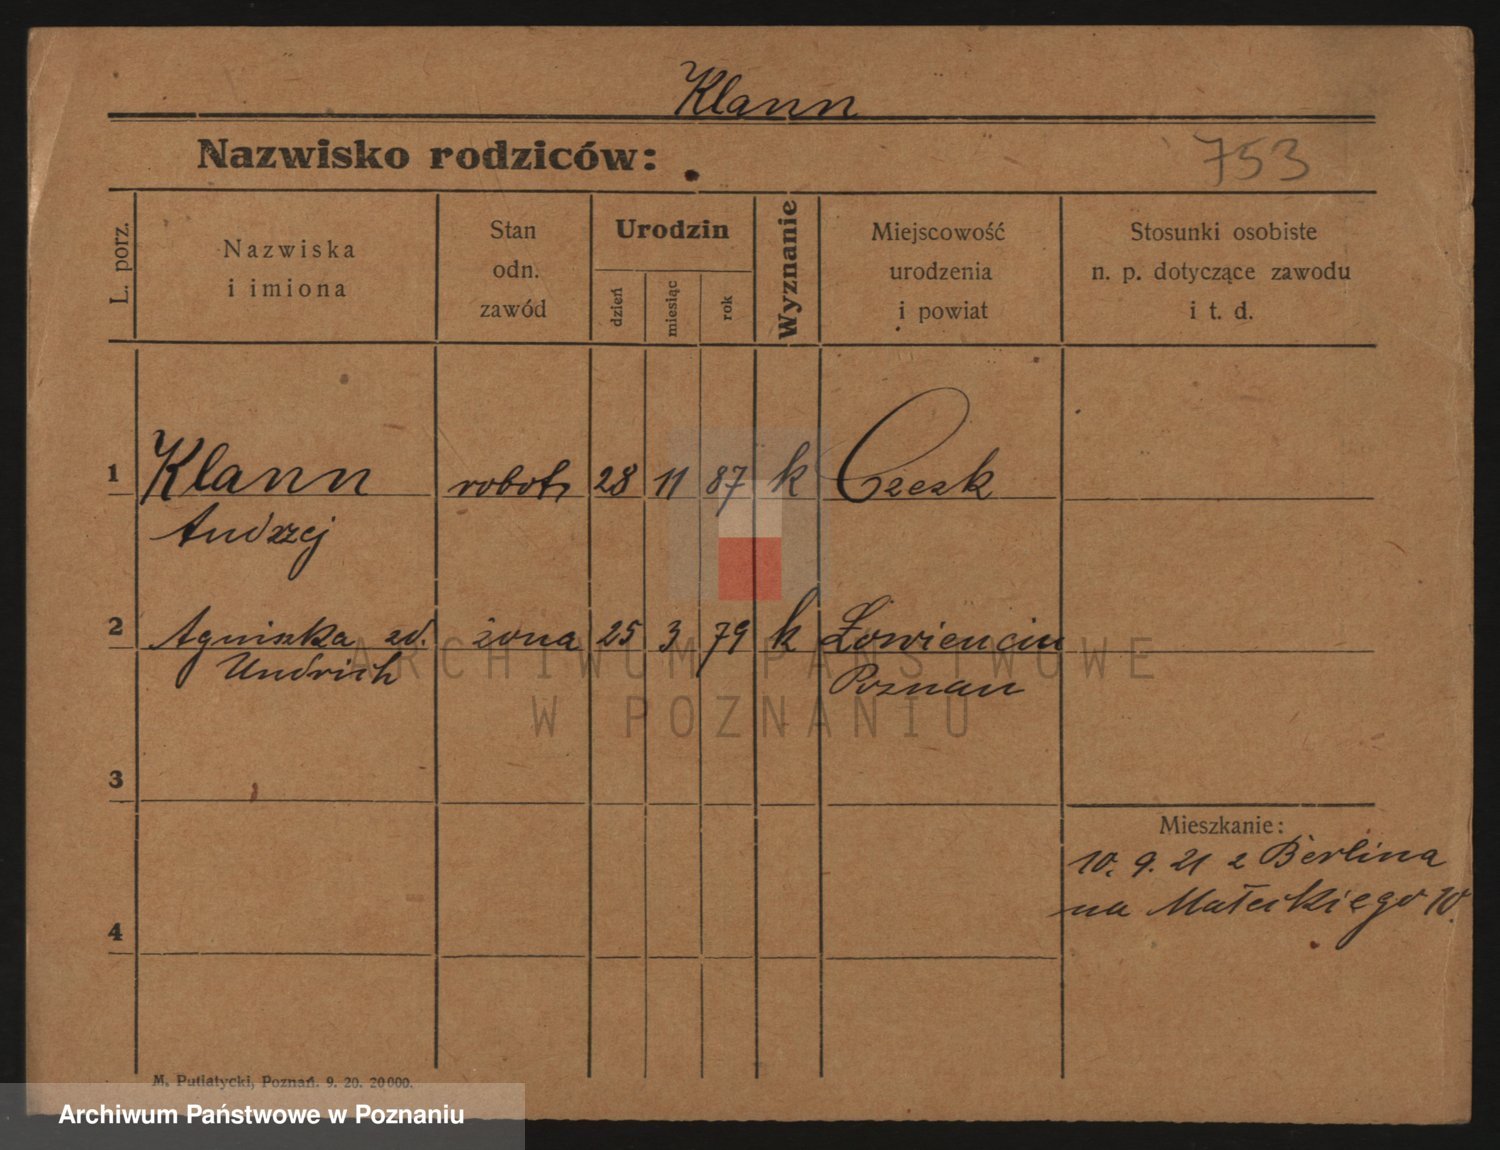 Klann
Nazwisko rodziców:
753
L. porz.
Nazwiska
i imiona
Stan
odn.
zawód
Urodzin
dzień
miesiąc
rok
Wyznanie
Miejscowość
urodzenia
i powiat
Stosunki osobiste
n. p. dotyczące zawodu
i t. d.
1 Klann robotn 28 11 87 k Czesk
Andrzej
2 Agniszka zd. żona 25 3 79 k Łowiencin
Undrich Poznan
3
Mieszkanie:
10. 9. 21 z Berlina
na Małeckiego 10.
4
M. Putiatycki, Poznań. 9. 20. 20000.
ARCHIWUM PAŃSTWOWE
W POZNANIU
Archiwum Państwowe w Poznaniu